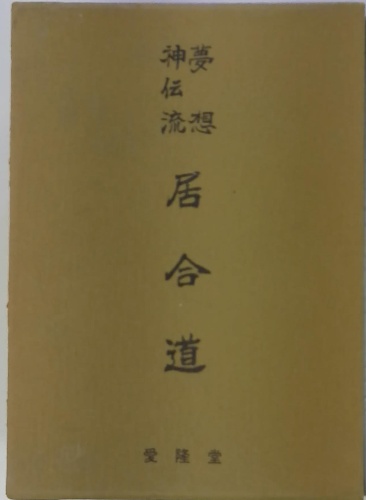 夢想
神伝流
居合道
愛隆堂